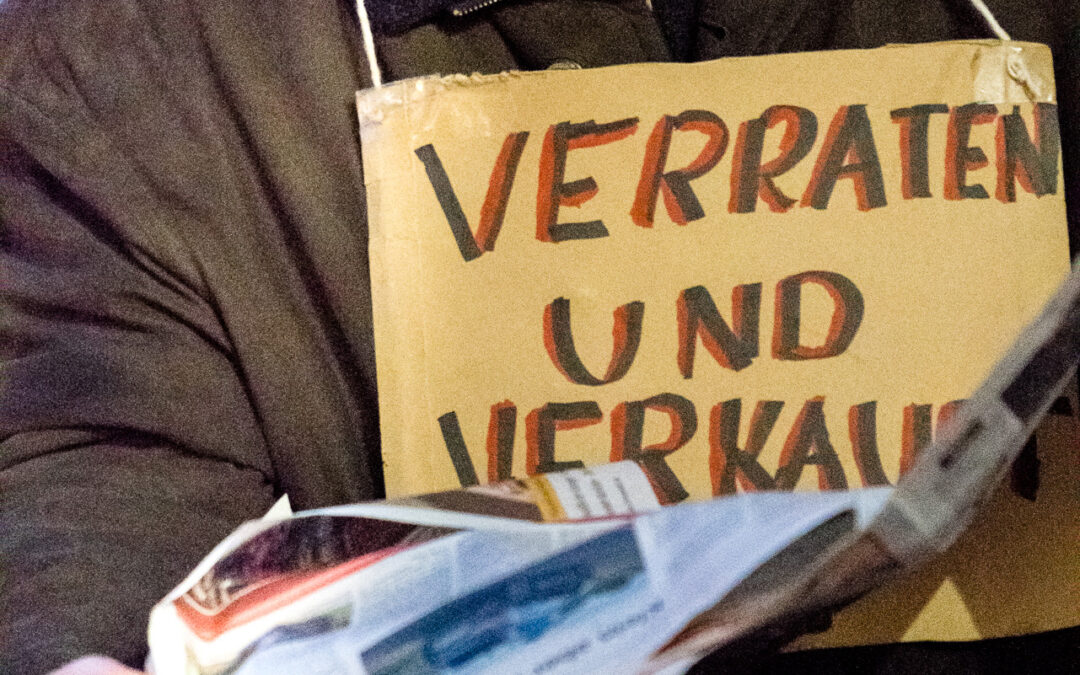 VERRATEN
UND
VERKAUFT